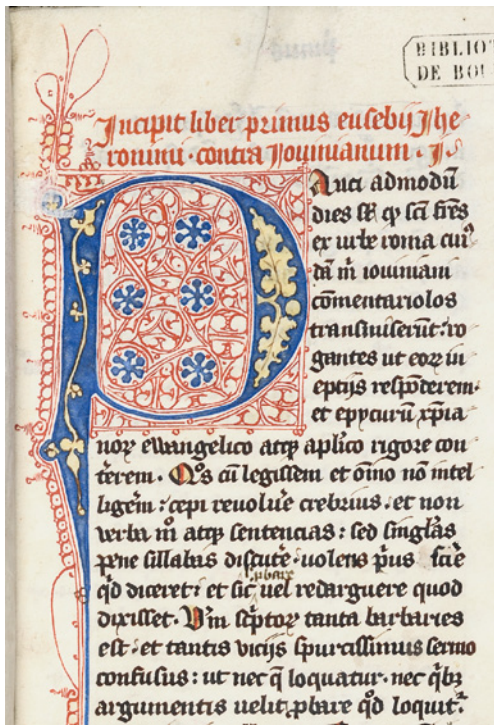 BIBLIOT
DE BOU
Incipit liber primus eusebij Jhe
ronimi · contra Jouinianum · J ·
PAuci admodū
dies st̄ qͥ sc̄i fr̄es
ex urbe roma cuiꝰ
dā m̄ iouiniani
cōmentariolos
transmiserūt: ro
gantes ut eoꝝ in
eptijs respōderem ·
et epycurū xp̄ia
noꝝ ewangelico atqꝫ apl̓ico rigore con
t̄erem · Q̄s cū legissem et om̄o nō intel
ligem̄: cepi reuolūe crebrius · et non
verba m̄ atqꝫ sentencias: sed singl̓as
pene sillabas discut̄e · uolens p̄us scīe
qd̄ diceret: et sic uel redarguere quod
ꝓbare
dixisset · V̄m sc̄ptoꝝ tanta barbaries
est · et tantis vicijs spurcissimus sermo
confusus: ut nec q̄ loquatur · nec qͥbꝫ
argumentis uelit ꝓbare qd̄ loquit᷑ ·